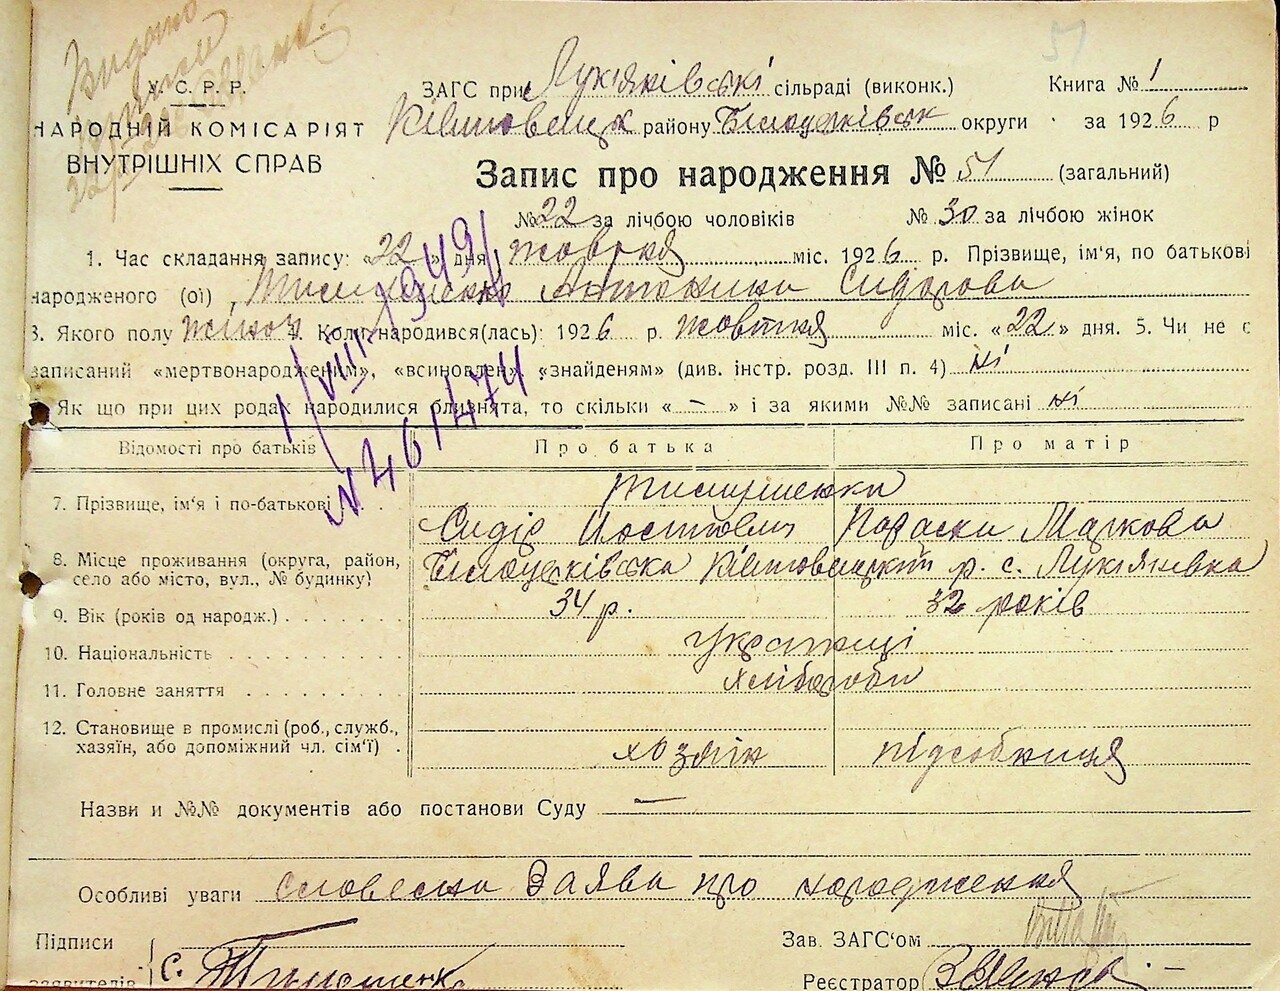 Видано
51
У.С.Р.Р.
НАРОДНІЙ КОМІСАРІЯТ
ВНУТРІШНІХ СПРАВ
ЗАГС при Лук'янівські сільраді (виконк.) Книга № 1
району Білоцерківськ округи за 1926 р
Запис про народження № 51 (загальний)
№ 22 за лічбою чоловіків № 30 за лічбою жінок
1. Час складання запису: «22» дня жовтня міс. 1926 р. Прізвище, ім'я, по батькові
народженого (ої) Тимошенко Антонина Сидорова
3. Якого полу жіноч 4. Коли народився(лась): 1926 р. жовтня міс. «22» дня. 5. Чи не є
записаний «мертвонародженим», «всиновлен» «знайденям» (див. інстр. розд. III п. 4) ні
Як що при цих родах народилися близнята, то скільки « – » і за якими №№ записані ні
1/VIII-1949
№ 461474
Відомості про батьків Про батька Про матір
7. Прізвище, ім'я і по-батькові Тимошенки
Сидір Параски Маркова
8. Місце проживання (округа, район, село або місто, вул., № будинку)
Білоцерківська р. с. Лук'янівка
9. Вік (років од народж.) 34 р. 32 років
10. Національність Українці
11. Головне заняття хлібороби
12. Становище в промислі (роб., служб.,
хазяїн, або допоміжний чл. сім'ї) хозяїн підсобниця
Назви и №№ документів або постанови Суду —
Особливі уваги словесна заява про народження
Підписи Зав. ЗАГС'ом
заявителів с. Тимошенко Реєстратор